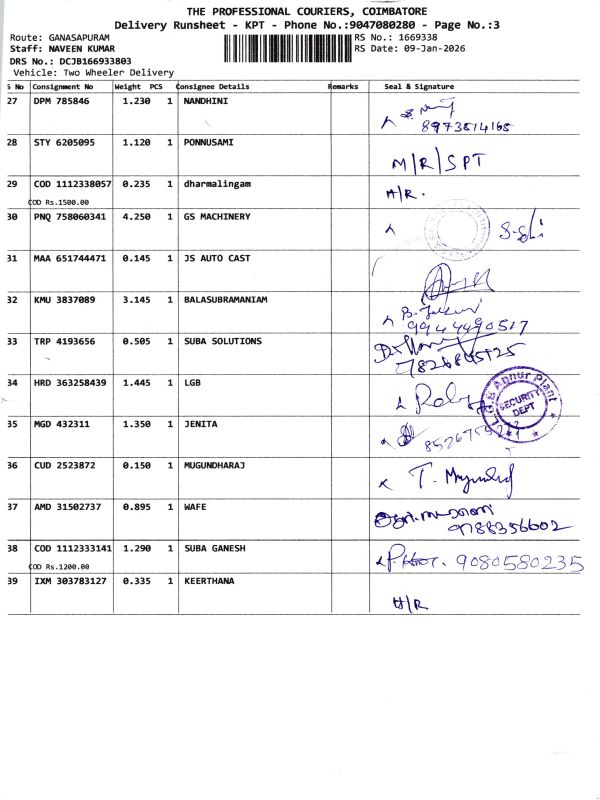 THE PROFESSIONAL COURIERS, COIMBATORE
Delivery Runsheet - KPT - Phone No.:9047080280 - Page No.:3
Route: GANASAPURAM
RS No.: 1669338
Staff: NAVEEN KUMAR
RS Date: 09-Jan-2026
DRS No.: DCJB166933803
Vehicle: Two Wheeler Delivery
S No Consignment No Weight PCS Consignee Details Remarks Seal & Signature
27 DPM 785846 1.230 1 NANDHINI
8973514165
28 STY 6205095 1.120 1 PONNUSAMI
M/R/SPT
29 COD 1112338057 0.235 1 dharmalingam
H/R.
COD Rs.1500.00
30 PNQ 758060341 4.250 1 GS MACHINERY
31 MAA 651744471 0.145 1 JS AUTO CAST
32 KMU 3837089 3.145 1 BALASUBRAMANIAM
9944490517
33 TRP 4193656 0.505 1 SUBA SOLUTIONS
7826845125
34 HRD 363258439 1.445 1 LGB
L.G.B Annur Plant
SECURITY
DEPT
35 MGD 432311 1.350 1 JENITA
36 CUD 2523872 0.150 1 MUGUNDHARAJ
37 AMD 31502737 0.895 1 WAFE
9788356602
38 COD 1112333141 1.290 1 SUBA GANESH
9080580235
COD Rs.1200.00
39 IXM 303783127 0.335 1 KEERTHANA
H/R